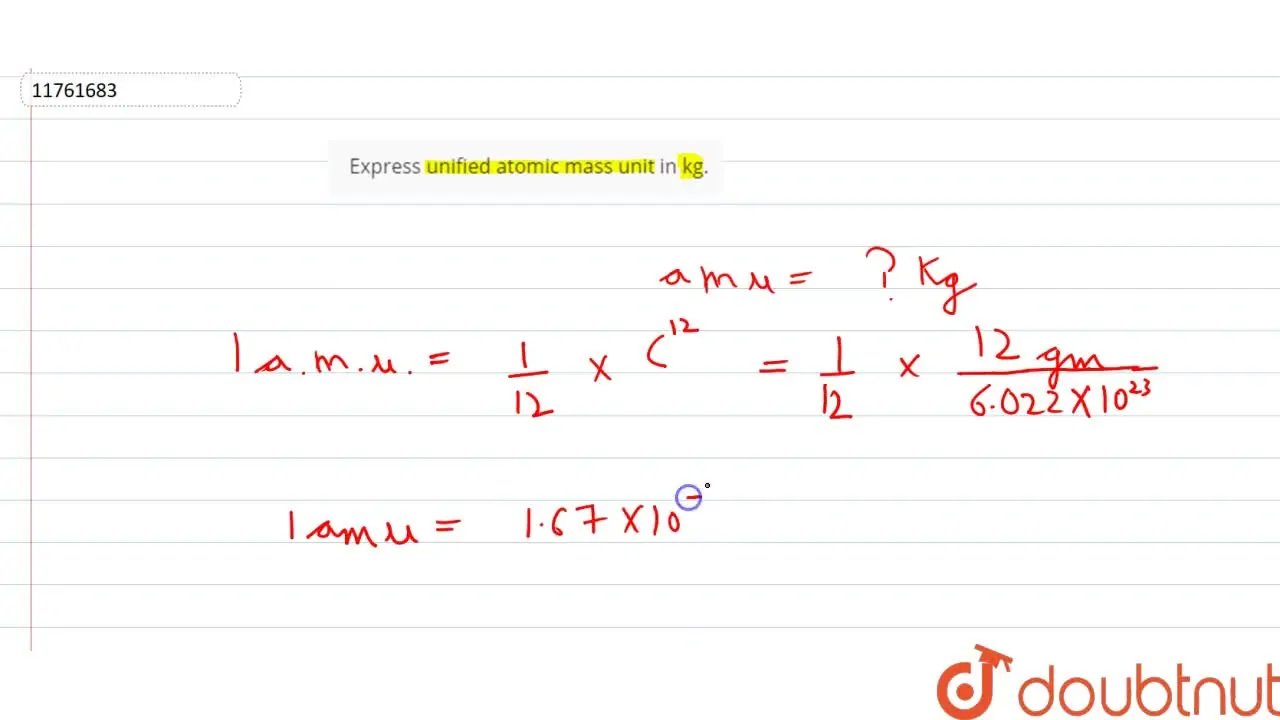 11761683
Express unified atomic mass unit in kg.
amu = ? Kg
1 a.m.u. = 1/12 × C¹² = 1/12 × 12 gm/6.022×10²³
1 amu = 1.67×10⁻
doubtnut